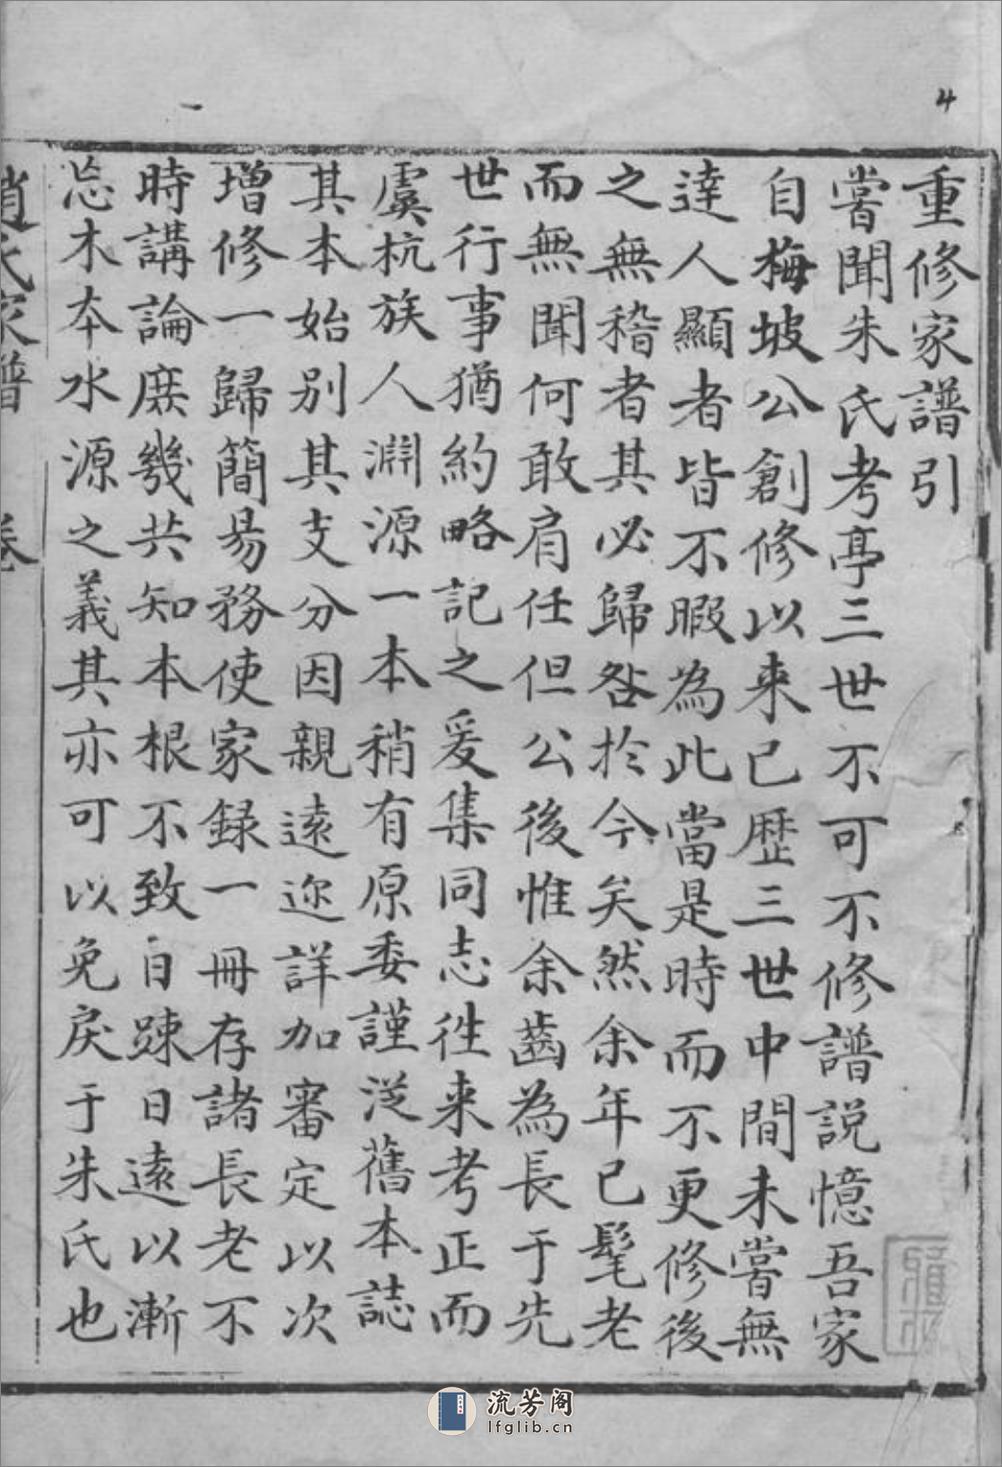 4
重修家譜引
嘗聞朱氏考亭三世不可不修譜説憶吾家
自梅坡公創修以来已歴三世中間未嘗無
達人顯者皆不暇為此當是時而不更修後
之無稽者其必歸咎於今矣然余年已髦老
而無聞何敢肩任但公後惟余齒為長于先
世行事猶約略記之爰集同志徃来考正而
虞杭族人淵源一本稍有原委謹从舊本誌
其本始别其支分因親遠迩詳加審定以次
增修一歸簡昜務使家録一冊存諸長老不
時講論庶幾共知本根不致日踈日遠以漸
忘木本水源之義其亦可以免戾于朱氏也
趙氏家譜 卷
流芳阁
lfglib.cn